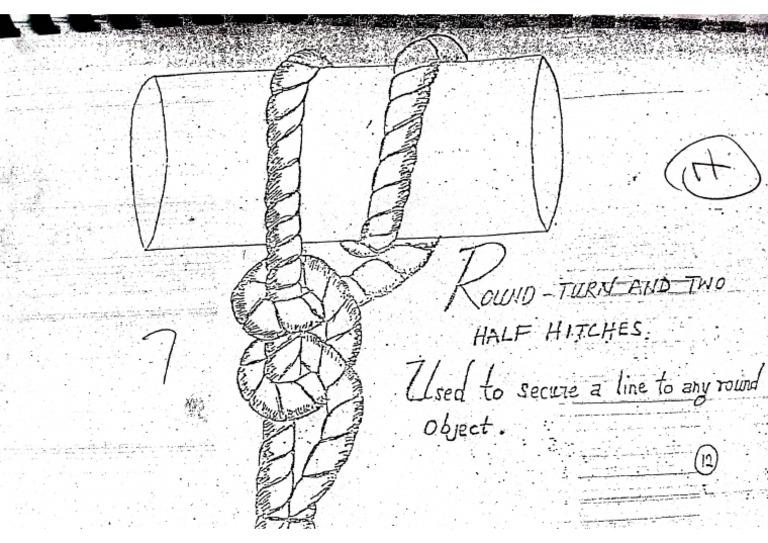 7
ROUND-TURN AND TWO
HALF HITCHES.
Used to secure a line to any round
object.
12